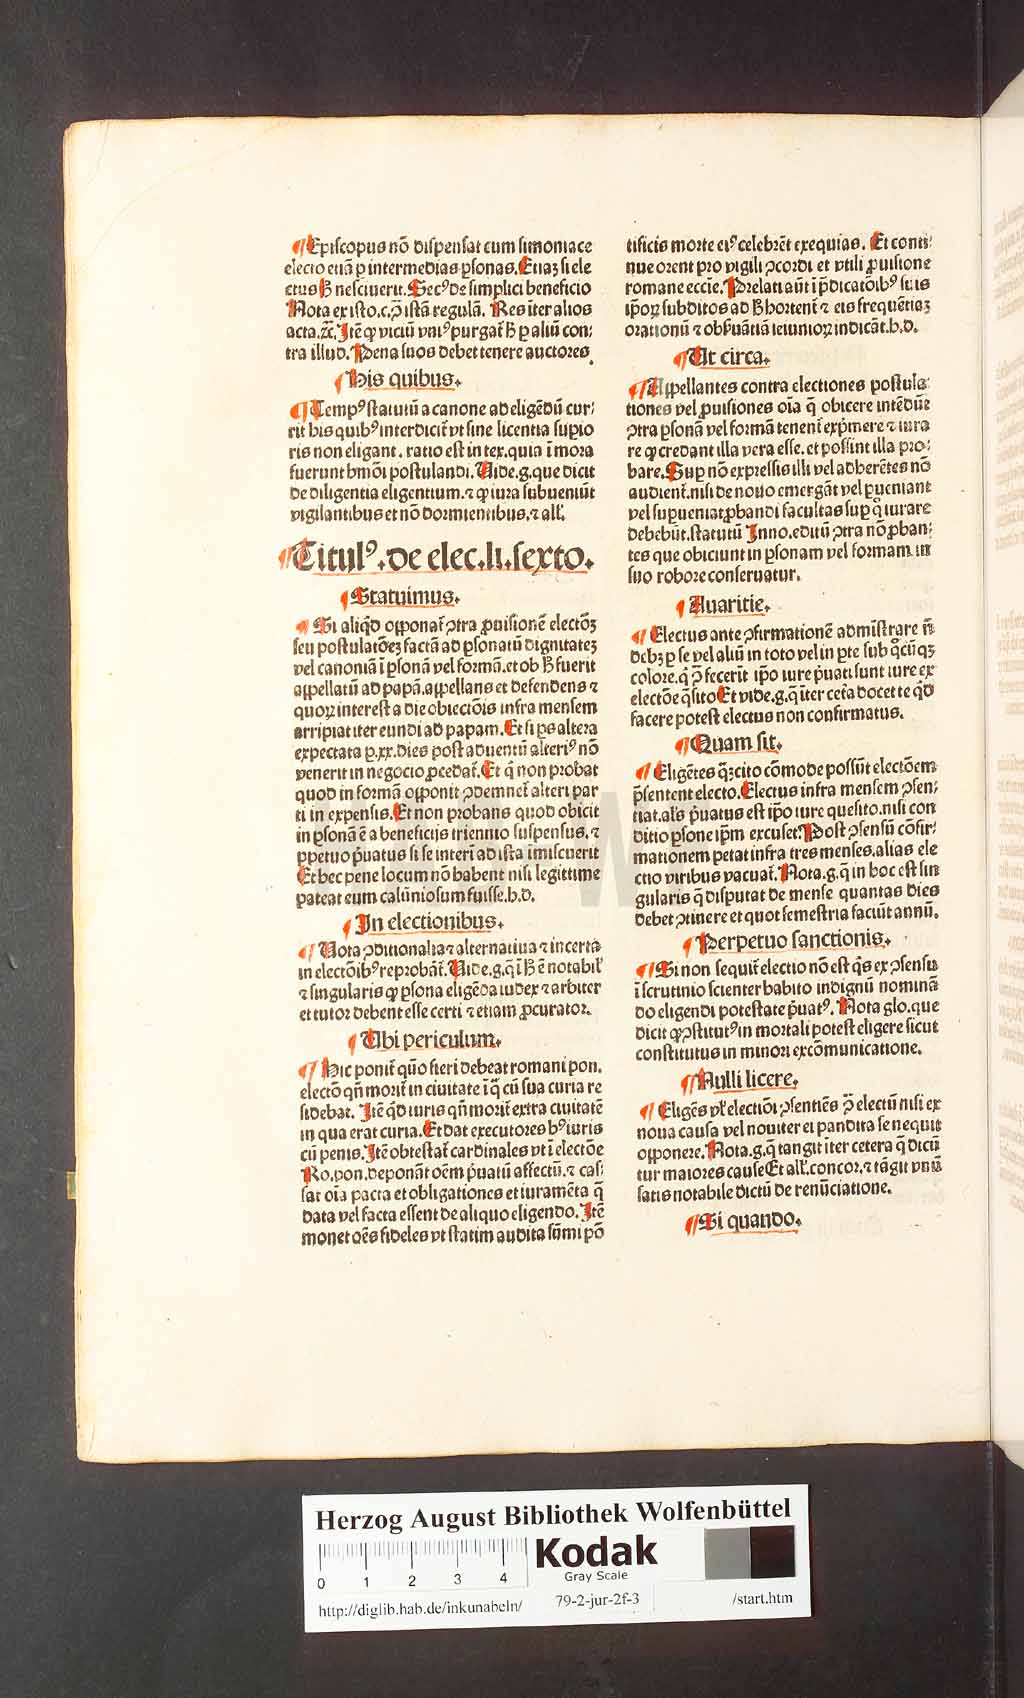 ¶ Episcopus nō dispensat cum simoniace
electo etiā p intermedias ꝑsonas. Etiaꝫ si ele
ctus ħ nesciuerit. Secꝰ de simplici beneficio
Nota ex isto .c. ꝓ istā regulā. Res iter alios
acta. ⁊c̄. Itē ꝙ viciū vniꝰ purgat̄ ħ ꝑ aliū con⸗
tra illud. Pena suos debet tenere auctores.
¶ His quibus.
¶ Tempꝰ statutū a canone ad eligēdū cur⸗
rit his quibꝰ interdicit̄ vt sine licentia supio
ris non eligant. ratio est in tex. quia ī mora
fuerunt hmōi postulandi. Vide .g. que dicit
de diligentia eligentium. ⁊ ꝙ iura subueniūt
vigilantibus et nō dormientibus. ⁊ all̄.
¶ Titulꝰ. de elec. li. sexto.
¶ Statuimus.
¶ Si aliqͦd opponat̄ ꝯtra ꝓuisionē electōꝫ
seu postulatōeꝫ factā ad ꝑsonatū dignitateꝫ
vel canoniā ī ꝑsonā vel formā. et ob ħ fuerit
appellatū ad papā. appellans et defendens ⁊
quoꝝ interest a die obiectiōis infra mensem
arripiat iter eundi ad papam. Et si ps altera
expectata ꝑ .xx. dies post aduentū alteriꝰ nō
venerit in negocio ꝓcedat̄. Et q̄ non probat
quod in formā opponit ꝯdemnet̄ alteri par
ti in expensis. Et non probans quod obicit
in ꝑsonā ē a beneficijs triennio suspensus. ⁊
ꝑpetuo p̄uatus si se interī ad ista imiscuerit
Et hec pene locum nō habent nisi legittime
pateat eum calūniosum fuisse. h. d.
¶ In electionibus.
¶ Nota ꝯditionalia ⁊ alternatiua ⁊ incerta
in electōibꝰ reprobāt̄. Vide .g. q̄ ī ħ ē notabil̄
⁊ singularis ꝙ ꝑsona eligēda iudex ⁊ arbiter
et tutor debent esse certi ⁊ etiam ꝓcurator.
¶ Vbi periculum.
¶ Hic ponit̄ quō fieri debeat romani pon.
electō qn̄ morit̄ in ciuitate ī q̄ cū sua curia re
sidebat. Itē qͦd iuris qn̄ morit̄ extra ciuitatē
in qua erat curia. Et dat executores hꝰ iuris
cū penis. Itē obtestat̄ cardinales vt ī electōe
Ro. pon. deponāt oēm p̄uatū affectū. ⁊ cas⸗
sat oīa pacta et obligationes et iuramēta q̄
data vel facta essent de aliquo eligendo. Itē
monet oēs fideles vt statim audita sūmi pō
tificis morte eiꝰ celebrēt exequias. Et conti⸗
nue orent pro vigili ꝯcordi et vtili ꝓuisione
romane eccie. Prelati aūt ī p̄dicatōibꝰ suis
ipoꝝ subditos ad ħ hortent̄ ⁊ eis frequētiaꝫ
orationū ⁊ obẛuātiā ieiunioꝝ indicāt. h. d.
¶ Ut circa.
¶ Appellantes contra electiones postula⸗
tiones vel ꝓuisiones oīa q̄ obicere intēdūt
ꝯtra ꝑsonā vel formā tenent̄ exp̄mere ⁊ iura
re ꝙ credant illa vera esse. et possint illa pro⸗
bare. Suꝑ nō expressis illi vel adherētes nō
audient̄. nisi de nouo emergāt vel ꝑueniant
vel supueniat ꝓbandi facultas suꝑ qͦ iurare
debebūt. statutū Inno. editū ꝯtra nō ꝓban⸗
tes que obiciunt in ꝑsonam vel formam. in
suo robore conseruatur.
¶ Auaritie.
¶ Electus ante ꝯfirmationē admīstrare n̄
debꝫ ꝑ se vel aliū in toto vel in ꝑte sub qͦcūqꝫ
colore. qͥ ꝓ fecerit ipō iure p̄uati sunt iure ex
electōe q̄sito Et vide .g. q̄ iter cet̄a docet te qͥd
facere potest electus non confirmatus.
¶ Quam sit.
¶ Eligētes qͣꝫcito cōmode possūt electōem
p̄sentent electo. Electus infra mensem ꝯsen⸗
tiat. al̓s p̄uatus est ipō iure quesito. nisi con
ditio ꝑsone ip̄m excuset. Post ꝯsensū cōfir⸗
mationem petat infra tres menses. alias ele
ctio viribus vacuat̄. Nota .g. q̄ in hoc est sin
gularis q̄ disputat de mense quantas dies
debet ꝯtinere et quot semestria faciūt annū.
¶ Perpetuo sanctionis.
¶ Si non sequit̄ electio nō est qͥs ex ꝯsensu
ī scrutinio scienter habito indignū nominā
do eligendi potestate p̄uatꝰ. Nota glo. que
dicit ꝙ ꝯstitutꝰ in mortali potest eligere sicut
constitutus in minori excōmunicatione.
¶ Nulli licere.
¶ Eligēs vl̓ electiōi ꝯsentiēs ꝓ electū nisi ex
noua causa vel nouiter ei pandita se nequit
opponere. Nota .g. q̄ tangit iter cetera q̄ dicū
tur maiores cause Et all̓. concor. ⁊ tāgit vnū
satis notabile dictū de renūciatione.
¶ Si quando.
Herzog August Bibliothek Wolfenbüttel
0 1 2 3 4
Kodak
Gray Scale
http://diglib.hab.de/inkunabeln/ 79-2-jur-2f-3 /start.htm